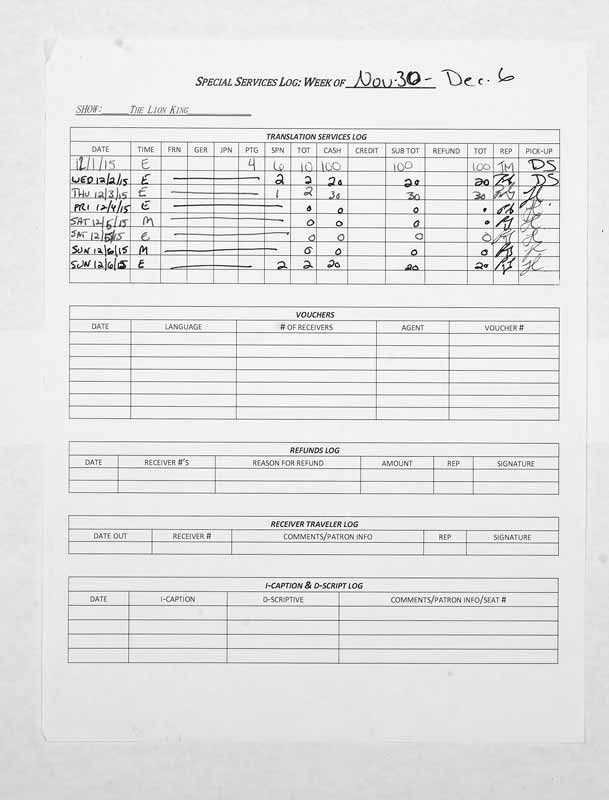 SPECIAL SERVICES LOG: WEEK OF Nov. 30 - Dec. 6
SHOW: THE LION KING
TRANSLATION SERVICES LOG
DATE TIME FRN GER JPN PTG SPN TOT CASH CREDIT SUB TOT REFUND TOT REP PICK-UP
12/1/15 E 4 6 10 100 100 100 TM DS
WED 12/2/15 E 2 2 20 20 20 DS
THU 12/3/15 E 1 2 30 30 30
FRI 12/4/15 E 0 0 0 0
SAT 12/5/15 M 0 0 0 0
SAT 12/5/15 E 0 0 0 0
SUN 12/6/15 M 0 0 0 0
SUN 12/6/15 E 2 2 20 20 20
VOUCHERS
DATE LANGUAGE # OF RECEIVERS AGENT VOUCHER #
REFUNDS LOG
DATE RECEIVER #'S REASON FOR REFUND AMOUNT REP SIGNATURE
RECEIVER TRAVELER LOG
DATE OUT RECEIVER # COMMENTS/PATRON INFO REP SIGNATURE
I-CAPTION & D-SCRIPT LOG
DATE I-CAPTION D-SCRIPTIVE COMMENTS/PATRON INFO/SEAT #